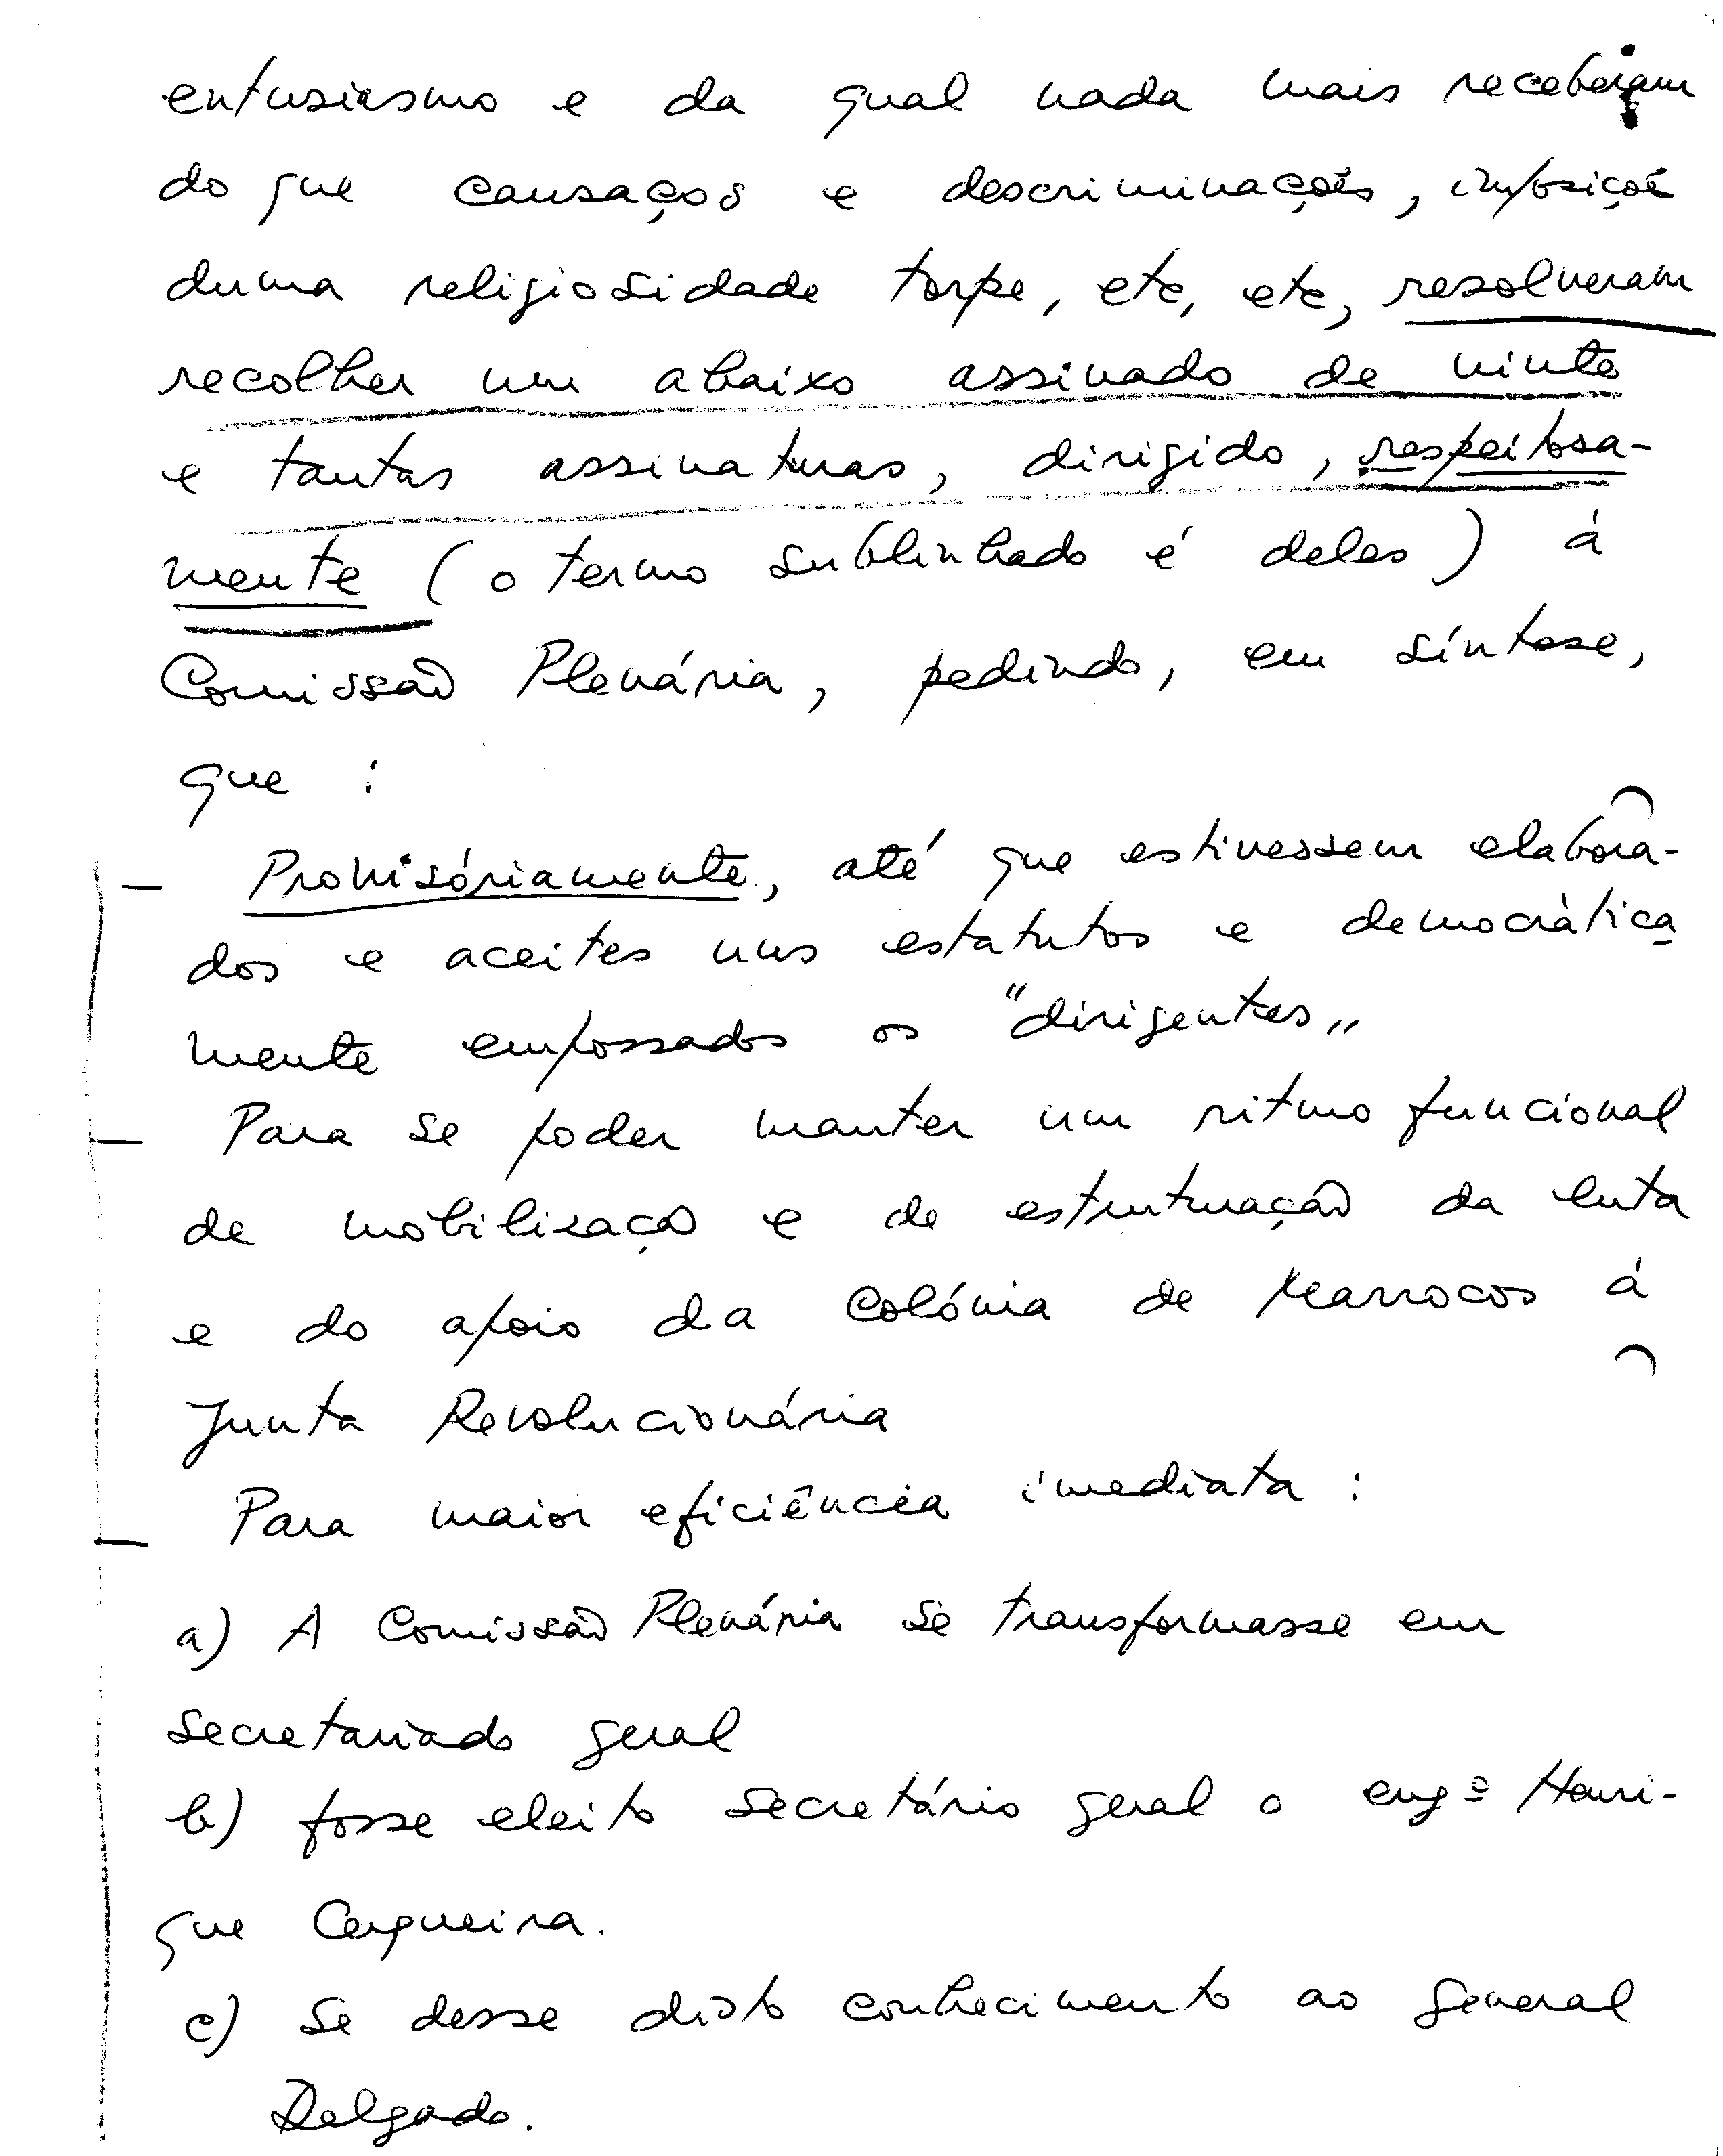 entusiasmo e da qual nada mais receberam
do que cansaços e descriminações, imposiçoe
duma religiosidade torpe, etc, etc, resolveram
recolher um abaixo assinado de vinte
e tantas assinaturas, dirigido, respeitosa-
mente (o termo sublinhado é deles) á
Comissão Plenária, pedindo, em síntese,
que :
— Provisóriamente, até que estivessem elabora-
dos e aceites uns estatutos e democrática
mente empossados os "dirigentes"
— Para se poder manter um ritmo funcional
de mobilizaçã e de estruturação da luta
e do apoio da Colónia de Marrocos á
Junta Revolucionária
— Para maior eficiência imediata :
a) A Comissão Plenária se transformasse em
secretariado geral
b) fosse eleito secretário geral o engº Henri-
que Cerqueira.
c) Se desse disto conhecimento ao general
Delgado.